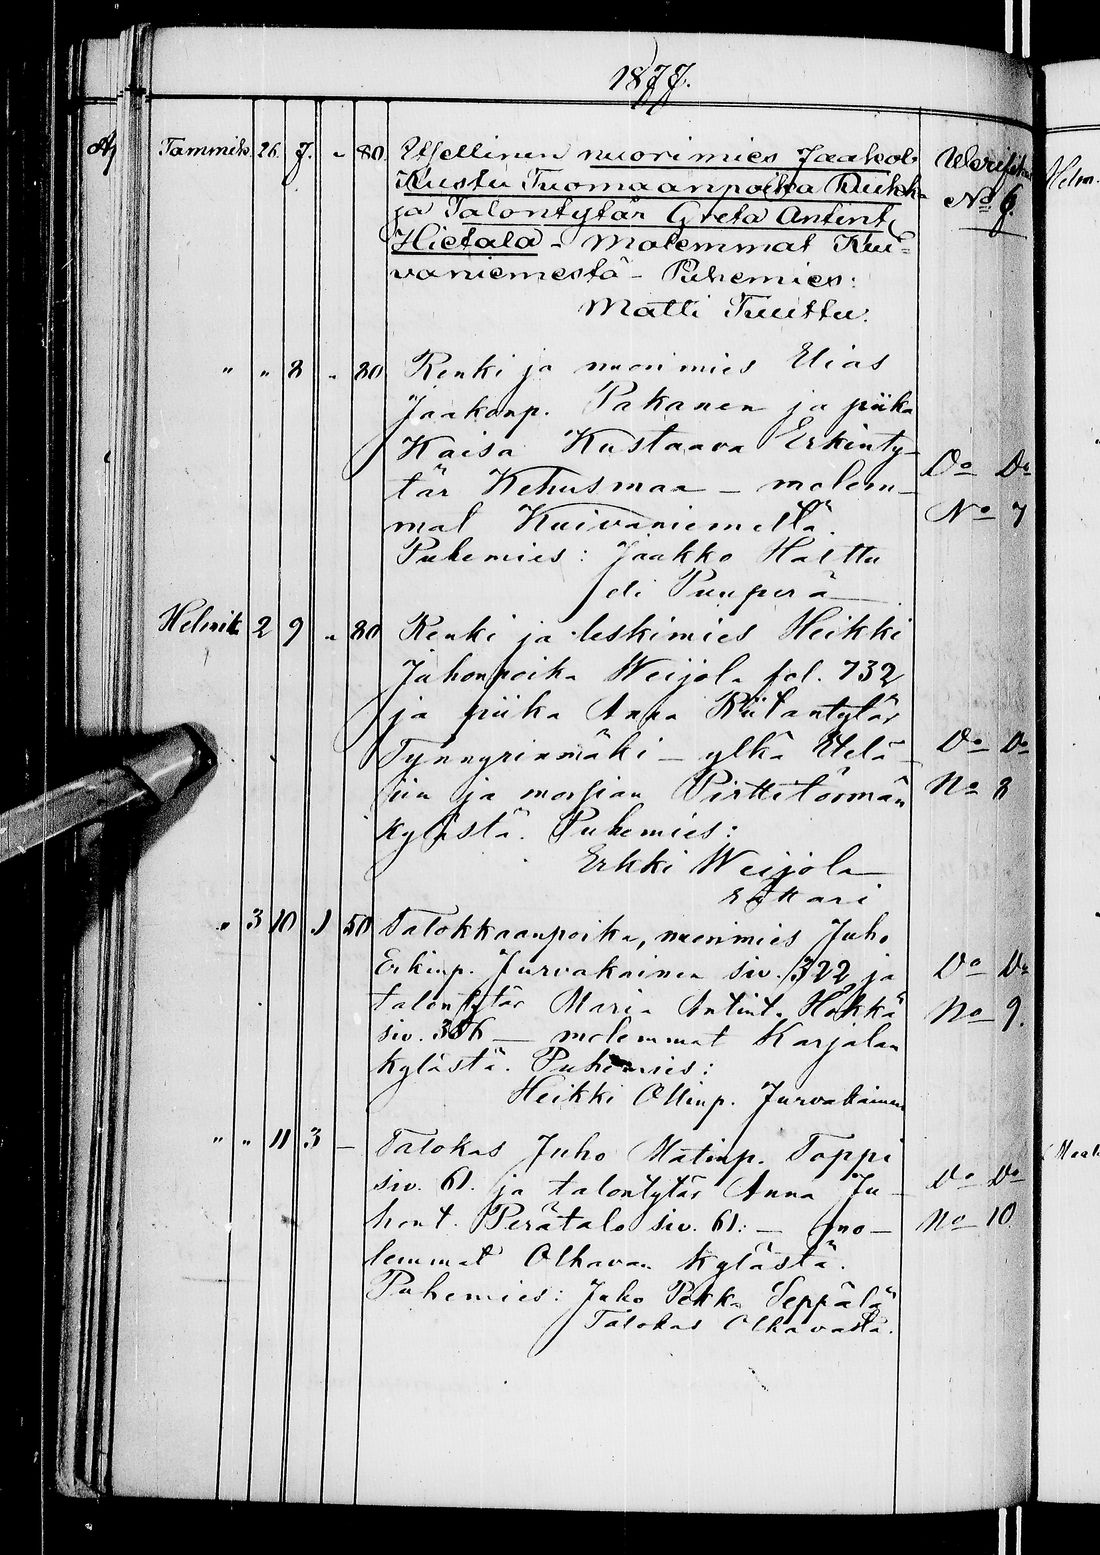 1877.
Tammik. 26. 7. " 80. Itsellinen nuorimies Jaakob
Kustu Tuomaanpoika Kukka
ja Talontytär Greta Antint.
Hietala - Molemmat Kui-
vaniemestä - Puhemies:
Matti Tuuttu.
Verifikat
No 6.
Helm.
" " 8 " 80 Renki ja nuorimies Elias
Jaakonp. Pakanen ja piika
Kaisa Kustaava Erkinty-
tär Kehusmaa - molem-
mat Kuivaniemeltä.
Puhemies: Jaakko Hattu
eli Puuperä
Do Do
No 7
Helmik. 2 9 " 80 Renki ja leskimies Heikki
Juhonpoika Weijola fol. 732
ja piika Anna Riitantytär
Tynnyrinmäki - ylkä Etelä-
iin ja morsian Pirttitörmän
kylästä. Puhemies:
Erkki Weijola
räттäri
Do Do
No 8
" 3 10 1 50 Talokkaanpoika, nuorimies Juho
Erkinp. Jurvakainen siv. 322 ja
talontytär Maria Antint. Hökkä
siv. 356 - molemmat Karjalan
kylästä. Puhemies:
Heikki Ollinp. Jurvakainen
Do Do
No 9.
" " 11 3 - Talokas Juho Matinp. Tappi
siv. 61. ja talontytär Anna Ju-
hont. Perätalo siv. 61. - mo-
lemmat Olhavan kylästä.
Puhemies: Juho Pekka Seppälä
Talokas Olhavasta.
Do Do
No 10